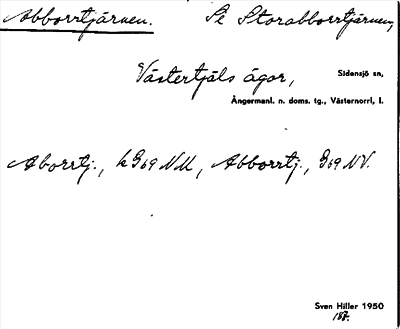 Abborrtjärnen. Se Storabborrtjärnen,
Västertjäls ägor, Sidensjö sn,
Ångermanl. n. doms. tg., Västernorrl. l.
Aborrtj., k G 69 NM, Abborrtj., G 69 NV.
Sven Hiller 1950
187.